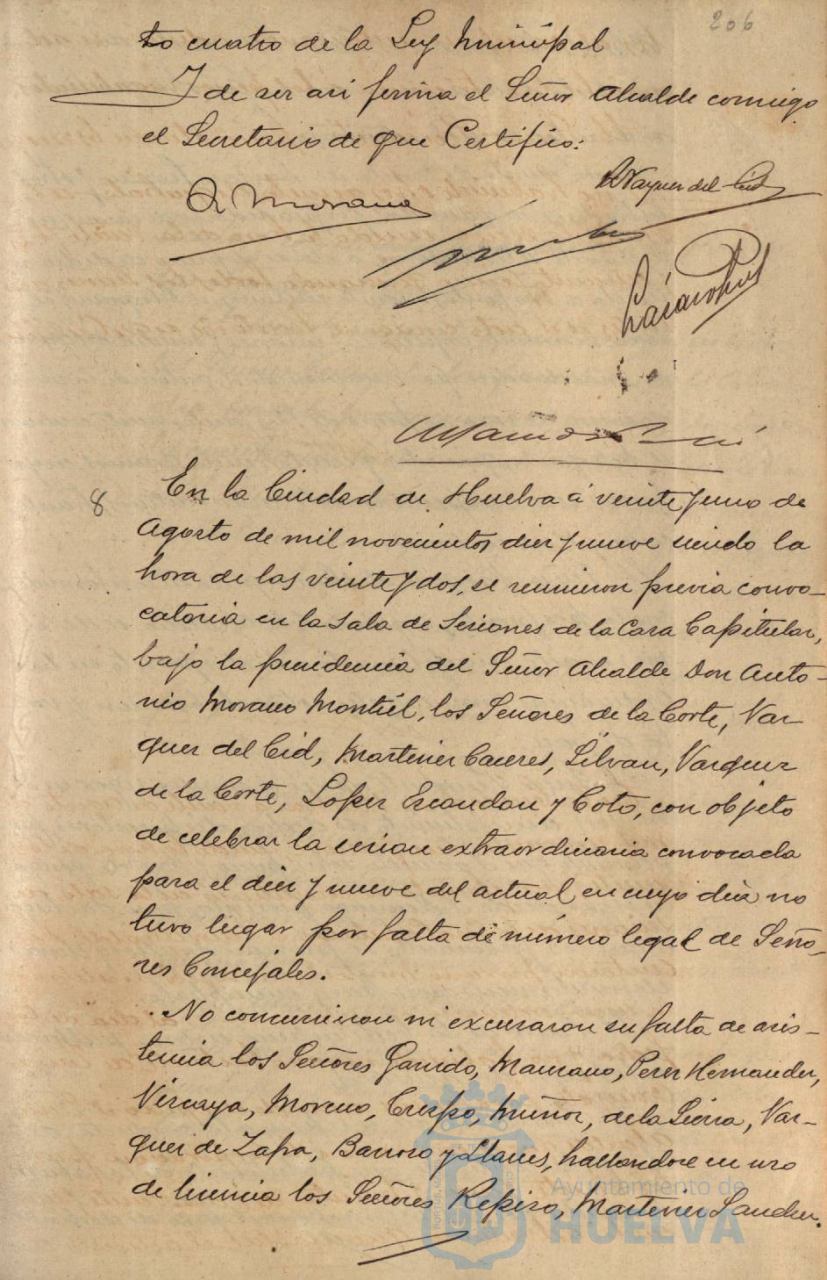 206
to cuatro de la Ley Municipal
Y de ser asi firma el Señor Alcalde conmigo
el Secretario de que Certifico:
A Vazquez del Cid
A Morano
8
En la Ciudad de Huelva á veinte y uno de
Agosto de mil novecientos diez y nueve siendo la
hora de las veinte y dos, se reunieron previa convo-
catoria en la Sala de Sesiones de la Casa Capitular,
bajo la presidencia del Señor Alcalde Don Anto-
nio Morano Montiel, los Señores de la Corte, Vaz-
quez del Cid, Martinez Caceres, Silvan, Vazquez
de la Corte, Lopez Escandon y Coto, con objeto
de celebrar la sesion extraordinaria convocada
para el diez y nueve del actual en cuyo dia no
tuvo lugar por falta de número legal de Seño-
res Concejales.
No concurrieron ni excusaron su falta de asis-
tencia los Señores Garrido, Manzano, Perez Hernandez,
Vizcaya, Moreno, Crespo, Muñoz, de la Sierra, Vaz-
quez de Zafra, Barroso y Llanes, hallandose en uso
de licencia los Señores Repiso, Martinez Sanchez.
Ayuntamiento de
HUELVA